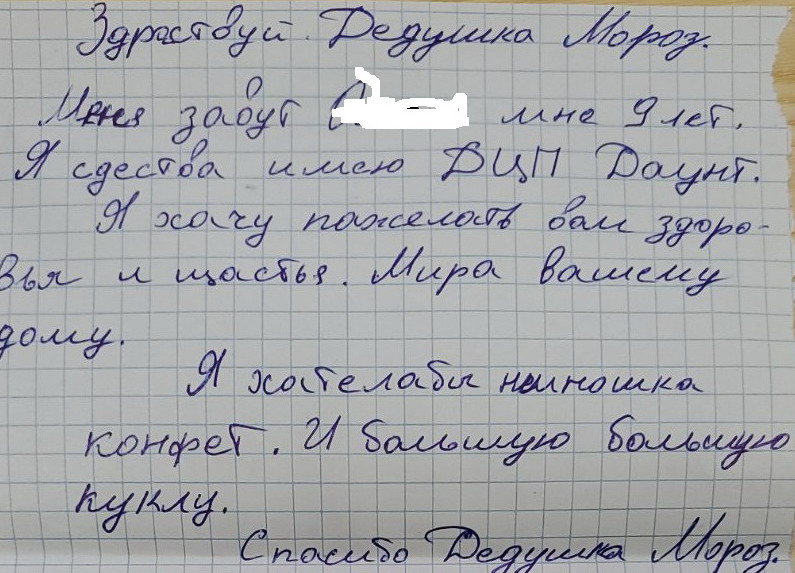 Здраствуй. Дедушка Мороз.
Меня завут мне 9 лет.
Я сдества имею ДЦП Даунт.
Я хачу пажелать вам здоро-
вья и щастья. Мира вашему
дому.
Я хателабы нминошка
конфет. И большую большую
куклу.
Спасибо Дедушка Мороз.